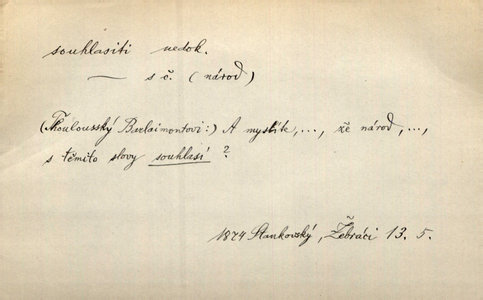 souhlasiti nedok.
— s č. (národ)
(Thoulousský Barlaimontovi:) A myslíte, ..., že národ, ...,
s těmito slovy souhlasí?
1874 Stankovský, Žebráci 13. 5.